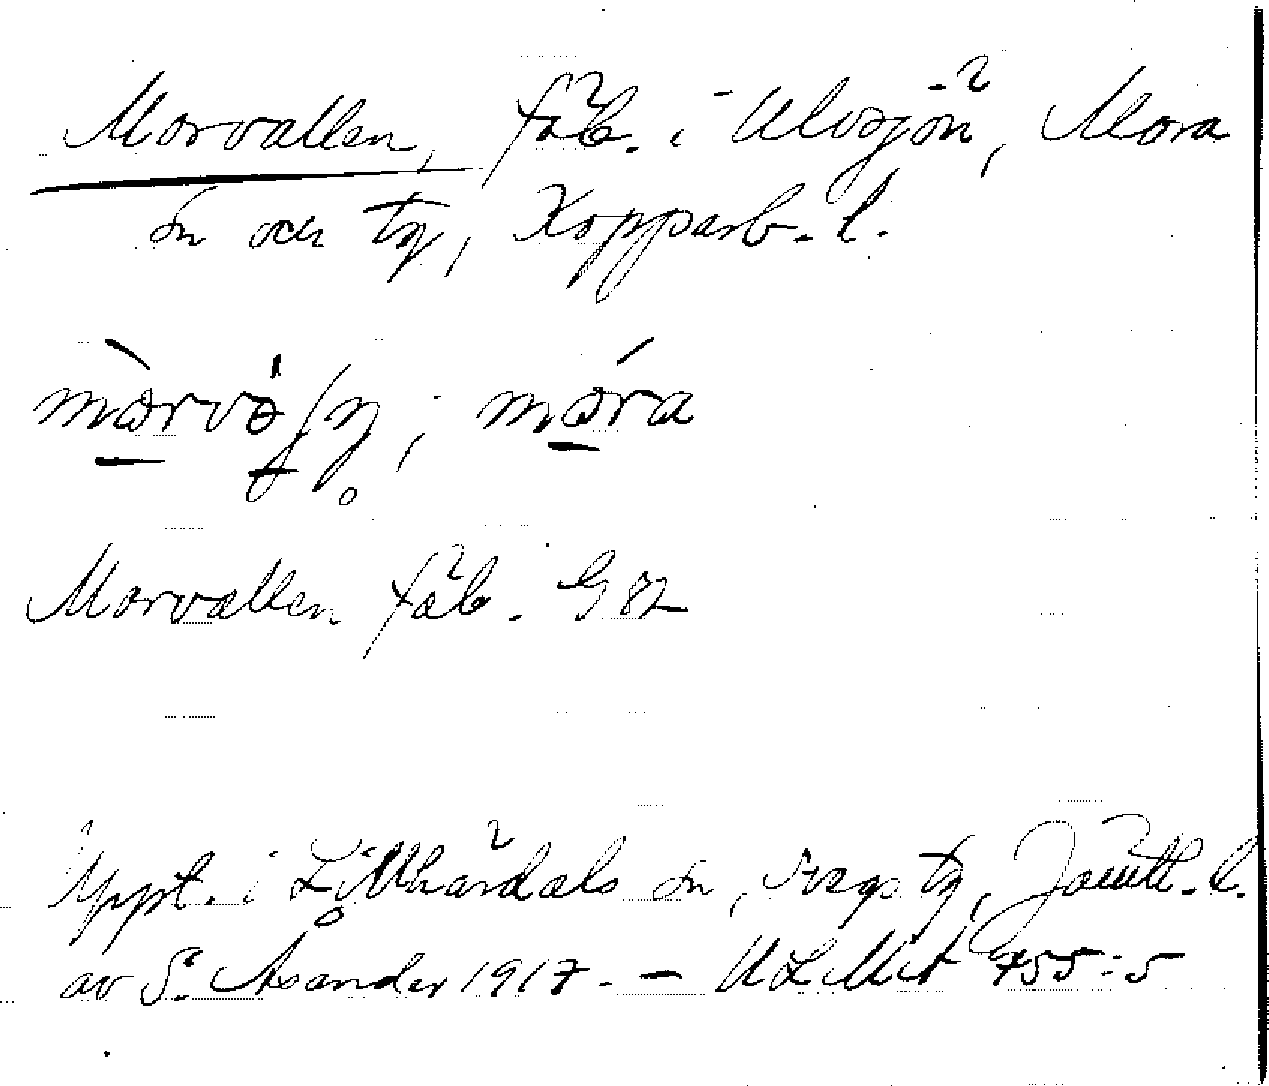 Morvallen, fäb. i Ulvsjön, Mora
sn och tg, Kopparb. l.
Morvallen fäb. G 82
Uppt. i Lillhärdals sn, Svegs tg, Jämtl. l.
av S. Åsander 1917. – ULMA 455:5